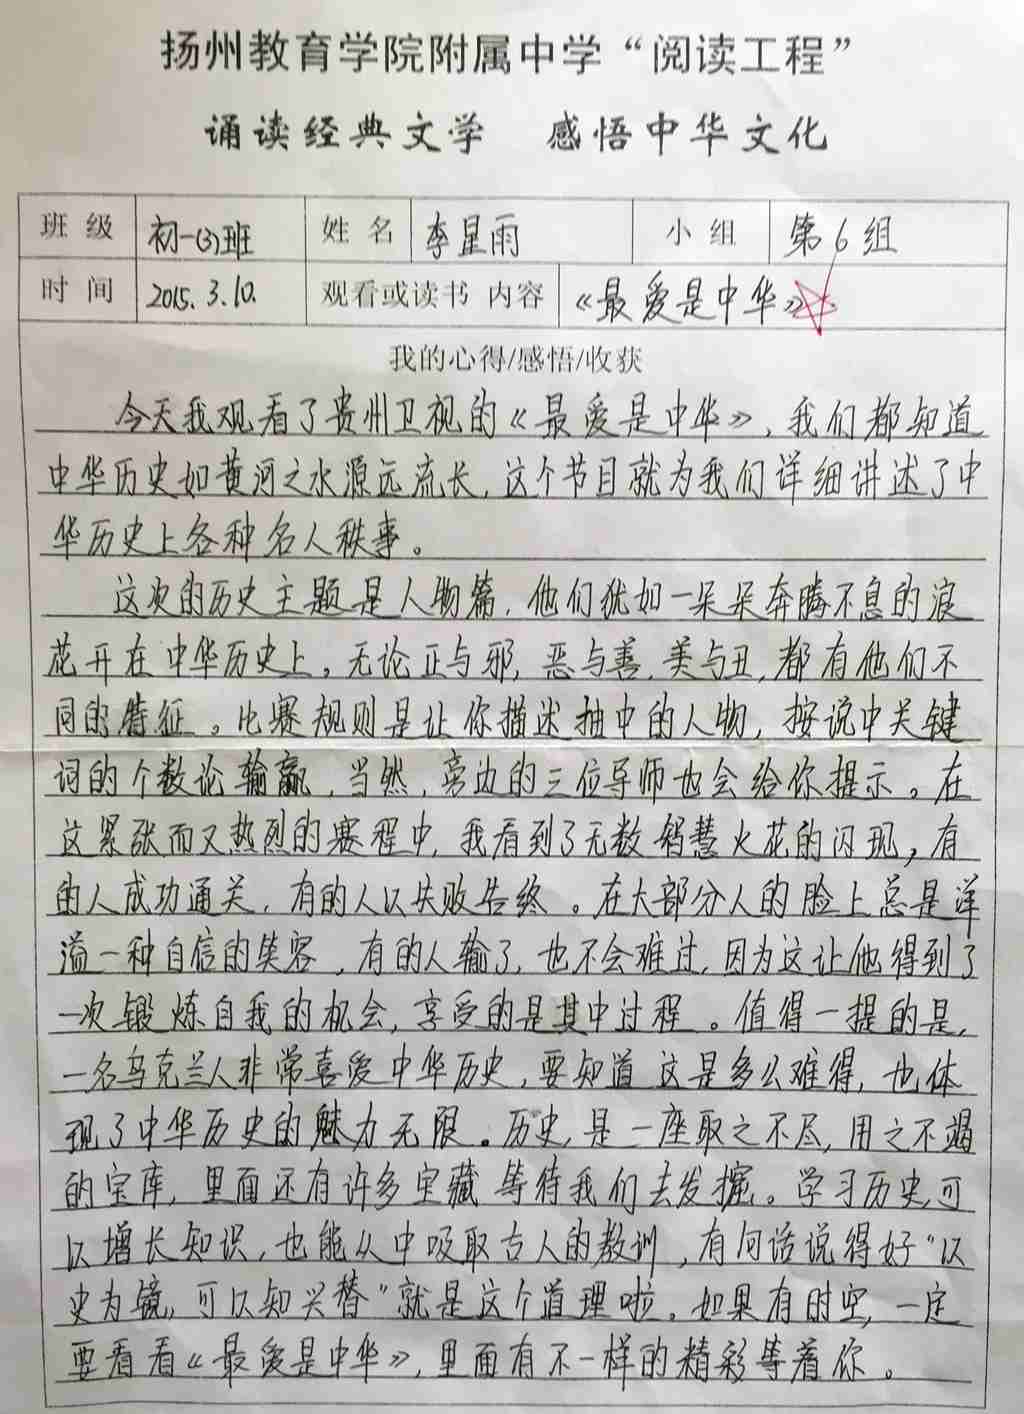 扬州教育学院附属中学“阅读工程”
诵读经典文学 感悟中华文化
班 级 初一(3)班 姓 名 李星雨 小 组 第6组
时 间 2015.3.10. 观看或读书 内容 《最爱是中华》
我的心得/感悟/收获
今天我观看了贵州卫视的《最爱是中华》，我们都知道
中华历史如黄河之水源远流长，这个节目就为我们详细讲述了中
华历史上各种名人秩事。
这次的历史主题是人物篇，他们犹如一朵朵奔腾不息的浪
花开在中华历史上。无论正与邪，恶与善，美与丑，都有他们不
同的特征。比赛规则是让你描述抽中的人物，按说中关键
词的个数论输赢，当然，旁边的三位导师也会给你提示。在
这紧张而又热烈的赛程中，我看到了无数智慧火花的闪现，有
的人成功通关，有的人以失败告终。在大部分人的脸上总是洋
溢一种自信的笑容，有的人输了，也不会难过，因为这让他得到了
一次锻炼自我的机会，享受的是其中过程。值得一提的是，
一名乌克兰人非常喜爱中华历史，要知道这是多么难得，也体
现了中华历史的魅力无限。历史，是一座取之不尽，用之不竭
的宝库，里面还有许多宝藏等待我们去发掘。学习历史，可
以增长知识，也能从中吸取古人的教训，有句话说得好“以
史为镜，可以知兴替”就是这个道理啦。如果有时空，一定
要看看《最爱是中华》，里面有不一样的精彩等着你。